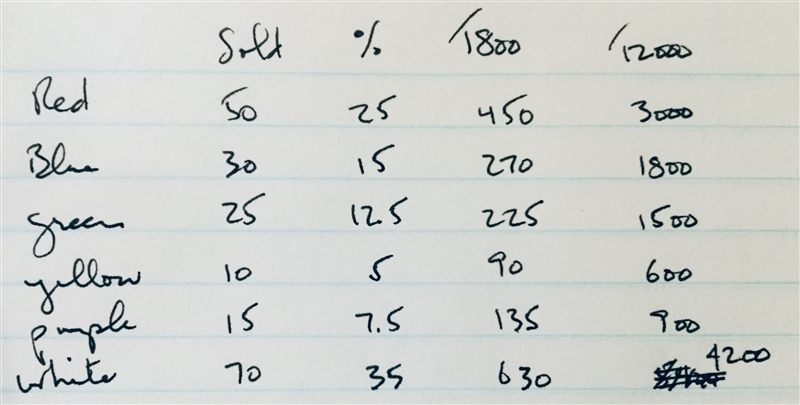 Sold % /1800 /12000
Red 50 25 450 3000
Blue 30 15 270 1800
green 25 12.5 225 1500
yellow 10 5 90 600
purple 15 7.5 135 900
white 70 35 630 4200